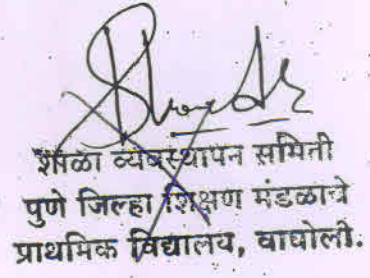 शाळा व्यवस्थापन समिती
पुणे जिल्हा शिक्षण मंडळाचे
प्राथमिक विद्यालय, वाघोली.